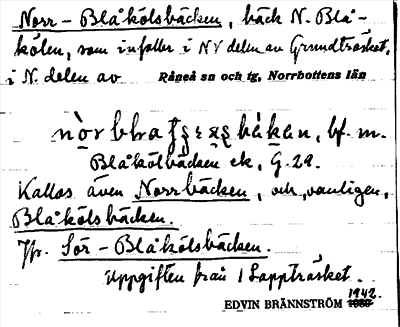 Norr-Blåkölsbäcken, bäck N. Blå-
kölen, som infaller i NV delen av Grundträsket,
i N. delen av Råneå sn och tg, Norrbottens län
bf. m.
Blåkölbäcken ek, G. 29.
Kallas även Norrbäcken, och, vanligen,
Blåkölsbäcken.
Jfr. Sör-Blåkölsbäcken.
Uppgiften från 1 Lappträsket.
1942.
EDVIN BRÄNNSTRÖM